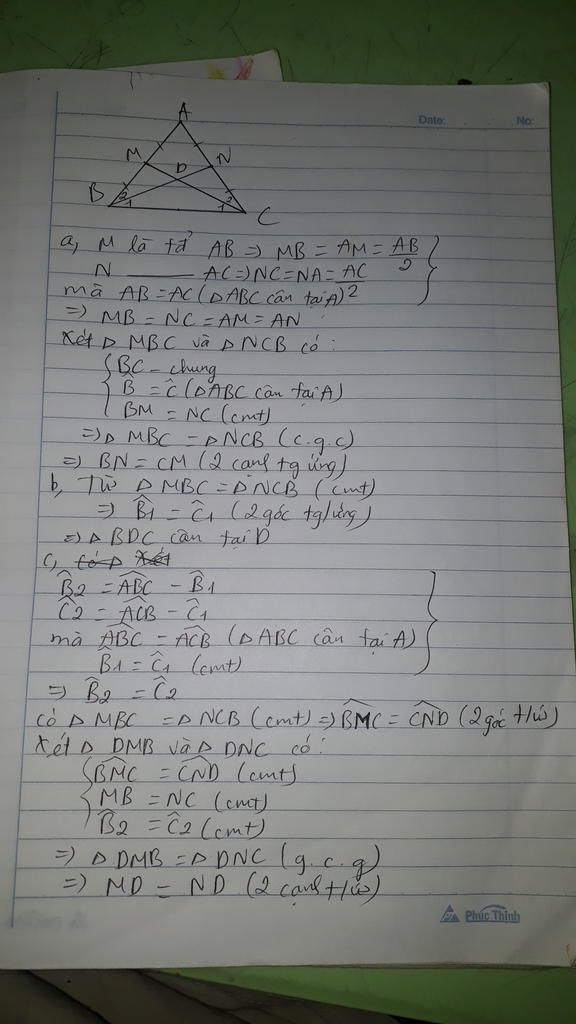 Date: No:
A
M D N
B 2 1 1 2 C
a, M là tđ AB => MB = AM = AB/2
N ——— AC => NC = NA = AC/2
mà AB = AC (△ABC cân tại A)
=> MB = NC = AM = AN
Xét △ MBC và △ NCB có:
BC - chung
B̂ = Ĉ (△ABC cân tại A)
BM = NC (cmt)
=> △ MBC = △NCB (c.g.c)
=> BN = CM (2 cạnh tg ứng)
b, Từ △ MBC = △ NCB (cmt)
=> B̂1 = Ĉ1 (2 góc tg/ứng)
=> △ BDC cân tại D
c, Có △ Xét
B̂2 = ABC - B̂1
Ĉ2 = ACB - Ĉ1
mà ABC = ACB (△ABC cân tại A)
B̂1 = Ĉ1 (cmt)
=> B̂2 = Ĉ2
Có △ MBC = △NCB (cmt) => BMC = CND (2 góc t/ứ)
Xét △ DMB và △ DNC có:
BMC = CND (cmt)
MB = NC (cmt)
B̂2 = Ĉ2 (cmt)
=> △ DMB = △ DNC (g.c.g)
=> MD = ND (2 cạnh t/ứ)
Phúc Thịnh